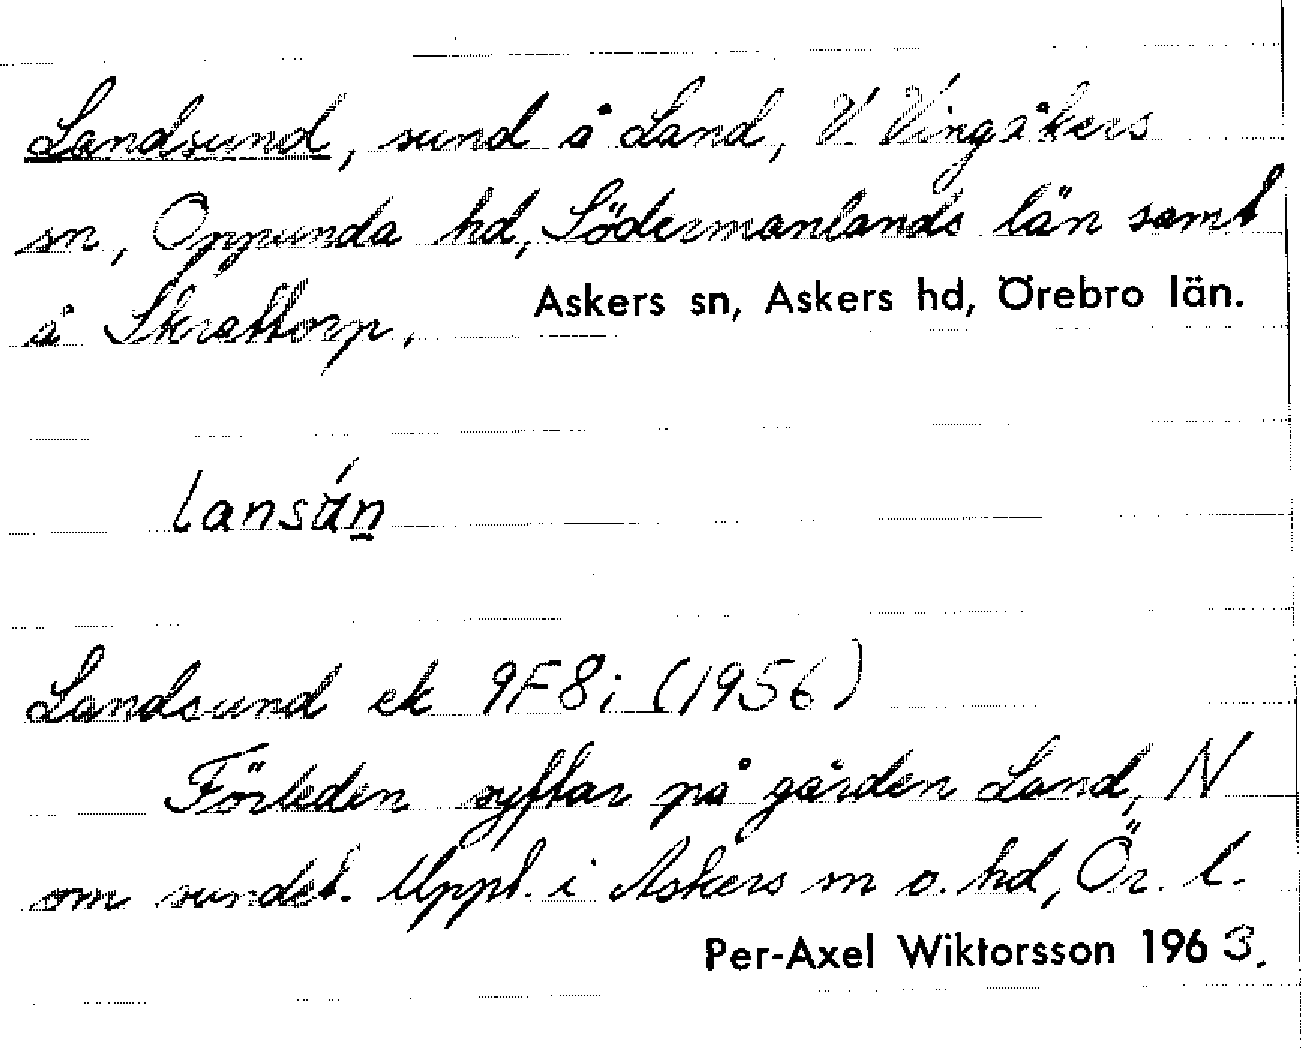 Landsund, sund å Land, V. Vingåkers
sn, Oppunda hd, Södermanlands län samt
å Skrattorp, Askers sn, Askers hd, Örebro län.
lansún
Landsund ek 9F8i (1956)
Förleden syftar på gården Land, N
om sundet. Uppt. i Askers sn o. hd, Ör. l.
Per-Axel Wiktorsson 1963.